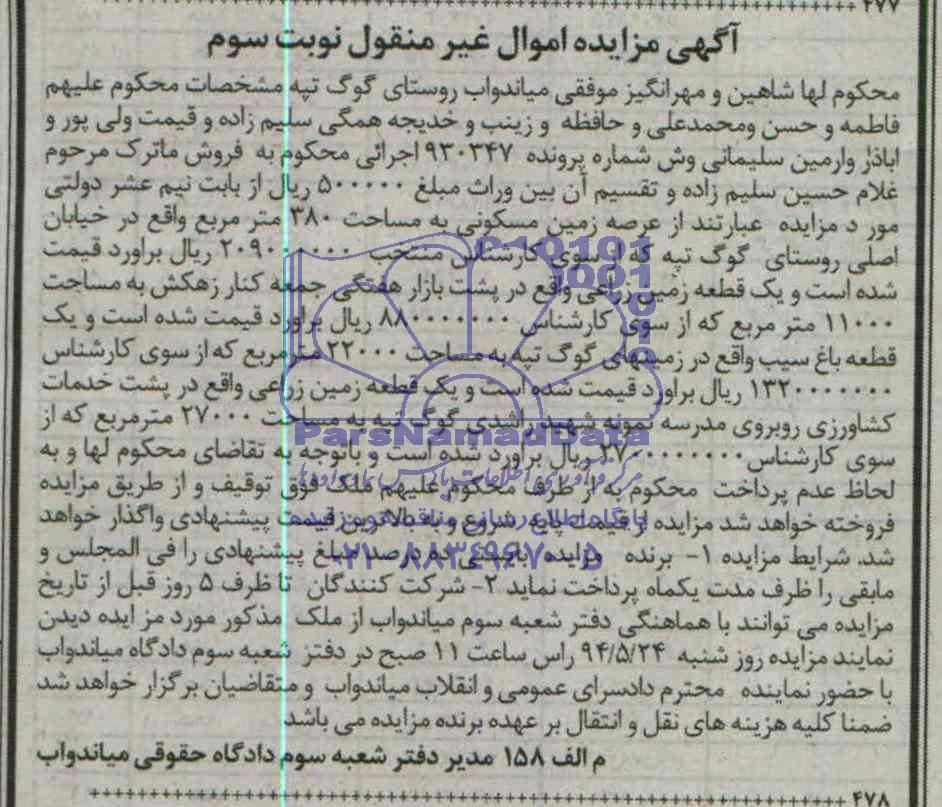 ۴۷۷
آگهی مزایده اموال غیر منقول نوبت سوم
محکوم لها شاهین و مهرانگیز موفقی میاندواب روستای گوگ تپه مشخصات محکوم علیهم
فاطمه و حسن ومحمدعلی و حافظه و زینب و خدیجه همگی سلیم زاده و قیمت ولی پور و
اباذر وارمین سلیمانی وش شماره پرونده ۹۳۰۳۴۷ اجرائی محکوم به فروش ماترک مرحوم
غلام حسین سلیم زاده و تقسیم آن بین وراث مبلغ ۵۰۰۰۰۰ ریال از بابت نیم عشر دولتی
مور د مزایده عبارتند از عرصه زمین مسکونی به مساحت ۳۸۰ متر مربع واقع در خیابان
اصلی روستای گوگ تپه که از سوی کارشناس منتخب ریال براورد قیمت
شده است و یک قطعه زمین زراعی واقع در پشت بازار هفتگی جمعه کنار زهکش به مساحت
۱۱۰۰۰ متر مربع که از سوی کارشناس ۸۸۰۰۰۰۰۰۰ ریال براورد قیمت شده است و یک
قطعه باغ سیب واقع در زمینهای گوگ تپه به مساحت ۲۲۰۰۰ مترمربع که از سوی کارشناس
۱۳۲۰۰۰۰۰۰۰ ریال براورد قیمت شده است و یک قطعه زمین زراعی واقع در پشت خدمات
کشاورزی روبروی مدرسه نمونه شهید راشدی گوگ تپه به مساحت ۲۷۰۰۰ مترمربع که از
سوی کارشناس ریال برآورد شده است و باتوجه به تقاضای محکوم لها و به
لحاظ عدم پرداخت محکوم به از طرف محکوم علیهم ملک فوق توقیف و از طریق مزایده
فروخته خواهد شد مزایده از قیمت پایه شروع و به بالاترین قیمت پیشنهادی واگذار خواهد
شد. شرایط مزایده ۱- برنده مزایده بایستی ده درصد مبلغ پیشنهادی را فی المجلس و
مابقی را ظرف مدت یکماه پرداخت نماید ۲- شرکت کنندگان تا ظرف ۵ روز قبل از تاریخ
مزایده می توانند با هماهنگی دفتر شعبه سوم میاندواب از ملک مذکور مورد مز ایده دیدن
نمایند مزایده روز شنبه ۹۴/۵/۲۴ راس ساعت ۱۱ صبح در دفتر شعبه سوم دادگاه میاندواب
با حضور نماینده محترم دادسرای عمومی و انقلاب میاندواب و متقاضیان برگزار خواهد شد
ضمنا کلیه هزینه های نقل و انتقال بر عهده برنده مزایده می باشد
م الف ۱۵۸ مدیر دفتر شعبه سوم دادگاه حقوقی میاندواب
۴۷۸
ParsNamadData
۰۲۱-۸۸۳۴۹۶۷۰-۵